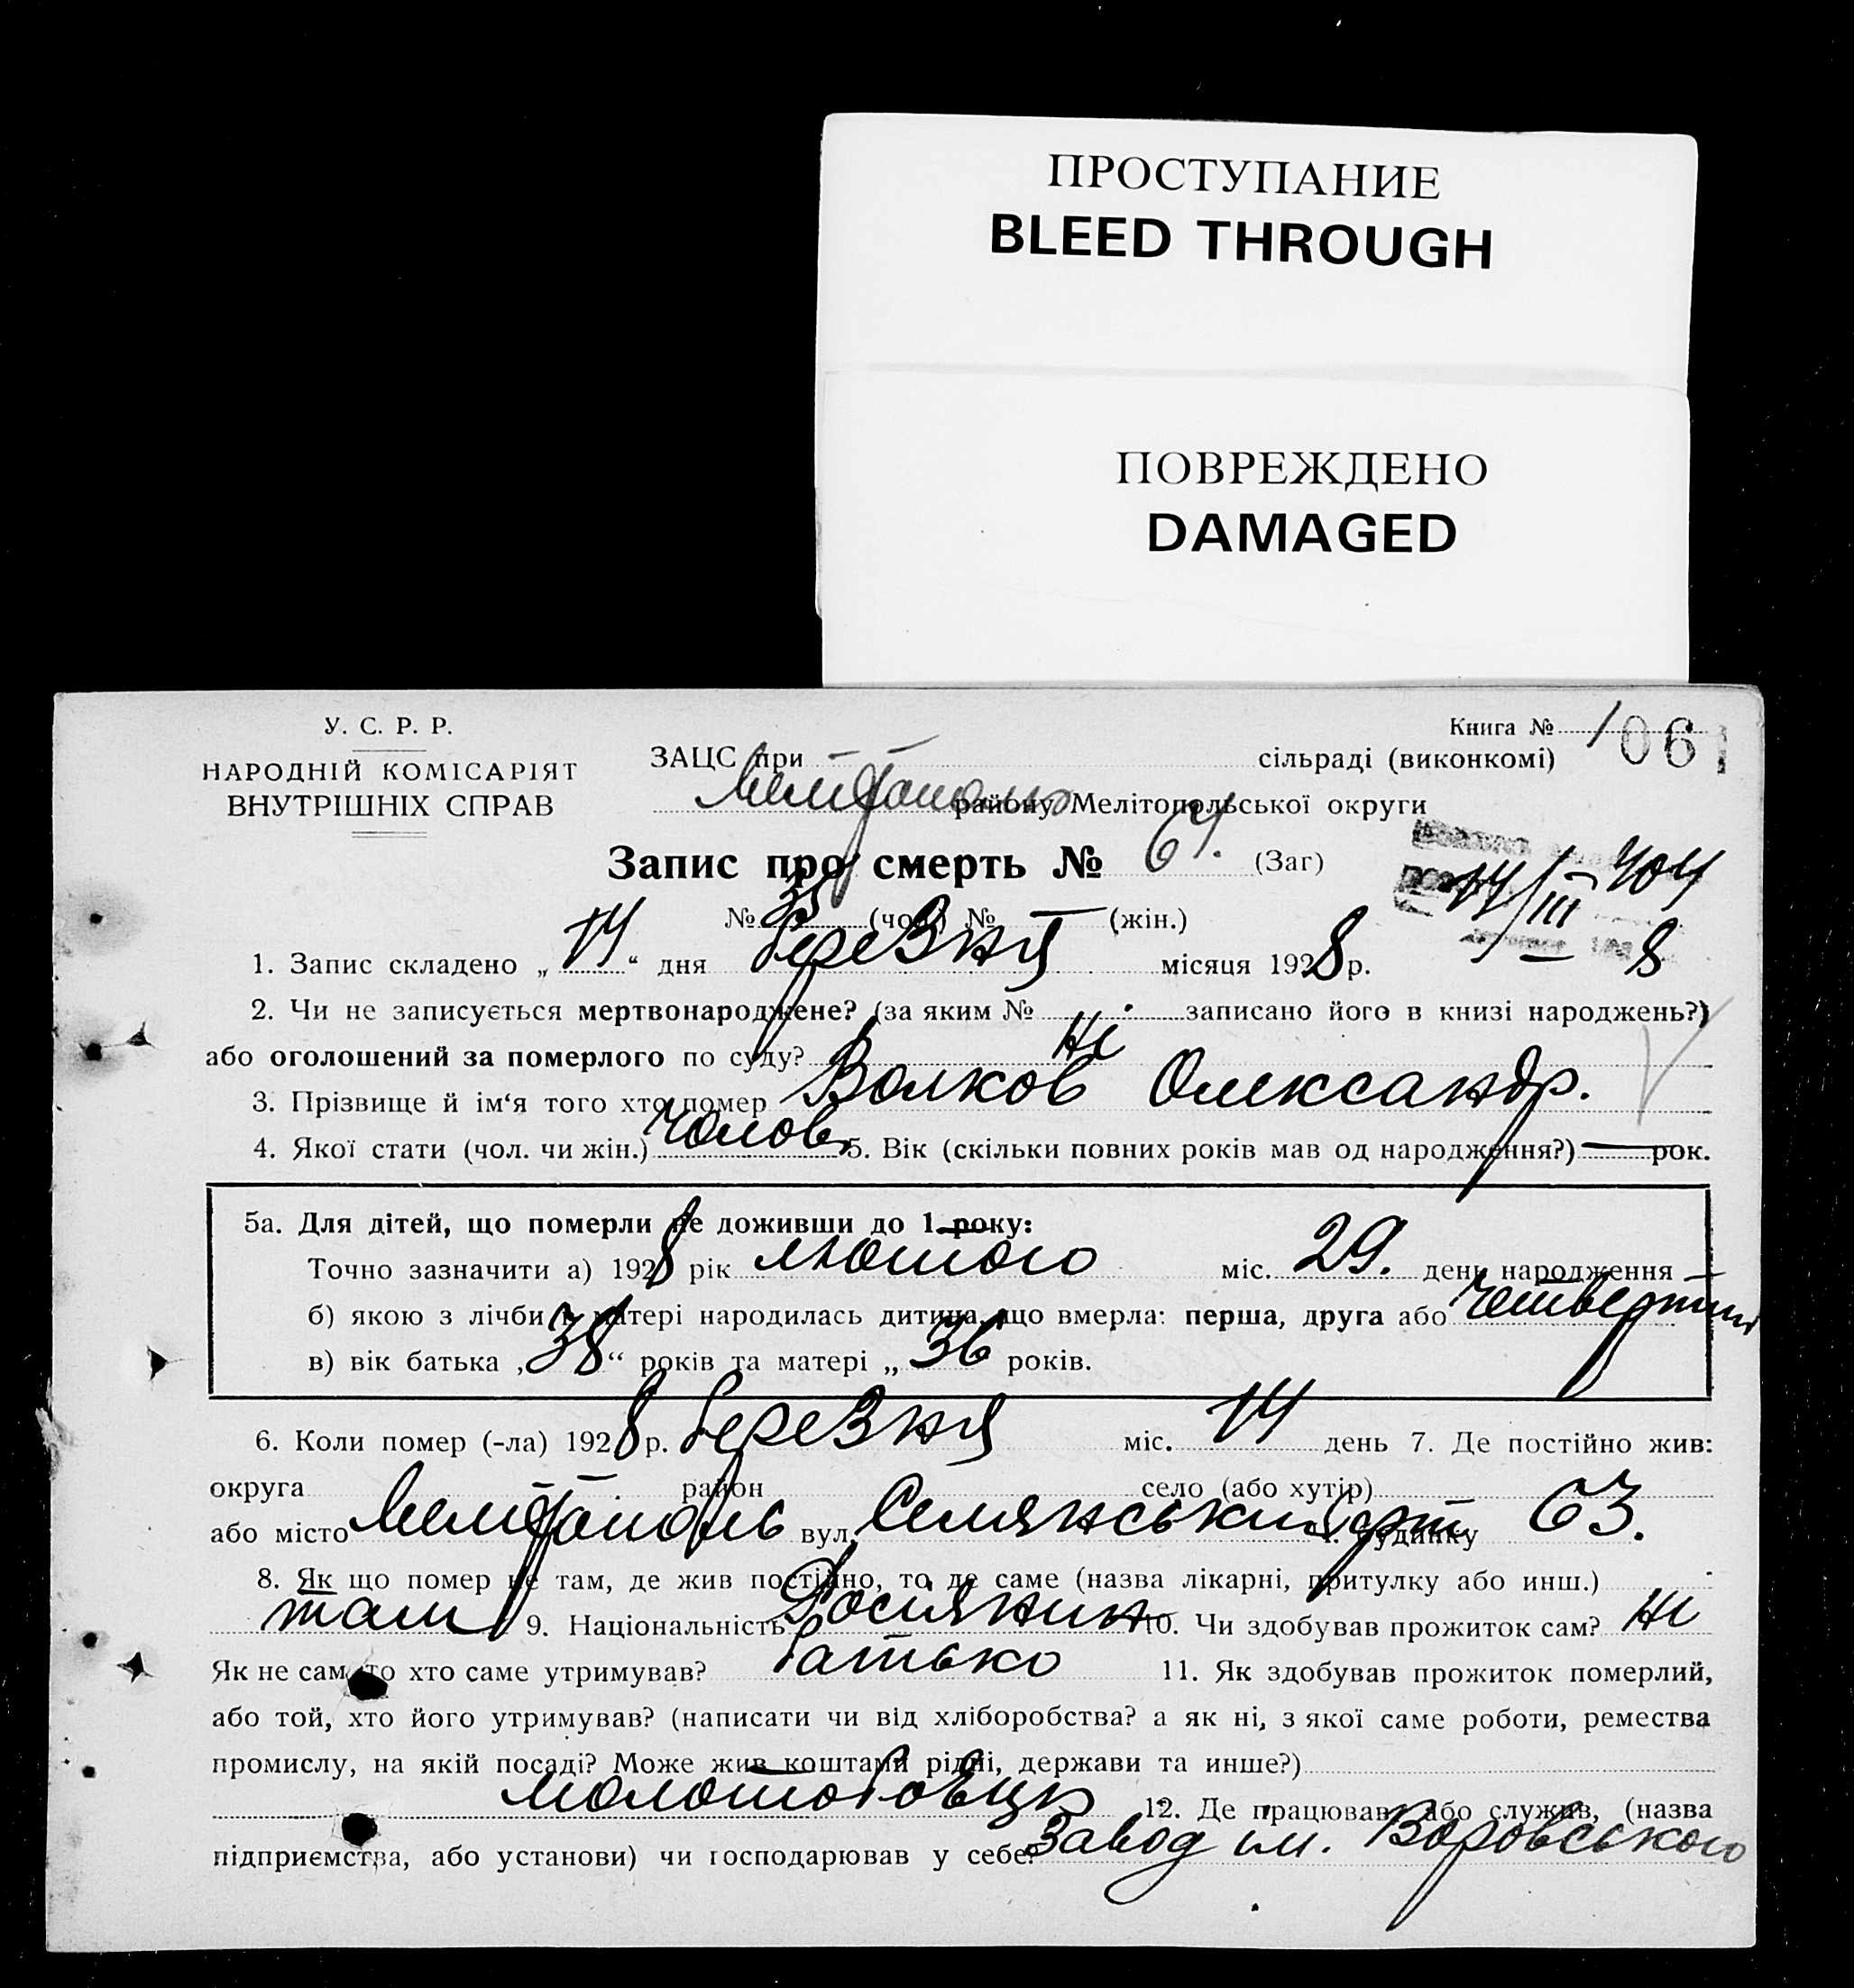 ПРОСТУПАНИЕ
BLEED THROUGH
ПОВРЕЖДЕНО
DAMAGED
У. С. Р. Р.
НАРОДНІЙ КОМІСАРІЯТ
ВНУТРІШНІХ СПРАВ
Книга № 1 06
ЗАЦС при сільраді (виконкомі)
району Мелітопольської округи
Запис про смерть № 64. (Заг)
№ 35 (чол.) № — (жін.)
14/III
8
1. Запис складено „14“ дня березня місяця 1928 р.
2. Чи не записується мертвонароджене? (за яким № записано його в книзі народжень?)
або оголошений за померлого по суду? Ні
3. Прізвище й ім‘я того хто помер Волков Олександр.
4. Якої стати (чол. чи жін.) Чолов. 5. Вік (скільки повних років мав од народження?) — рок.
5а. Для дітей, що померли не доживши до 1 року:
Точно зазначити а) 1928 рік лютого міс. 29. день народження
б) якою з лічби в матері народилась дитина, що вмерла: перша, друга або четвертий
в) вік батька „38“ років та матері „36 років.
6. Коли помер (-ла) 1928 р. березня міс. 14 день 7. Де постійно жив:
округа район село (або хутір)
або місто Мелітополь вул. будинку 63.
8. Як що помер не там, де жив постійно, то де саме (назва лікарні, притулку або инш.)
там 9. Національність Росіянин 10. Чи здобував прожиток сам? Ні
Як не сам, то хто саме утримував? Батько 11. Як здобував прожиток померлий,
або той, хто його утримував? (написати чи від хліборобства? а як ні, з якої саме роботи, ремества
промислу, на якій посаді? Може жив коштами рідні, держави та инше?)
молотобоєць 12. Де працював, або служив, (назва
підприємства, або установи) чи господарював у себе? Завод ім. Воровського